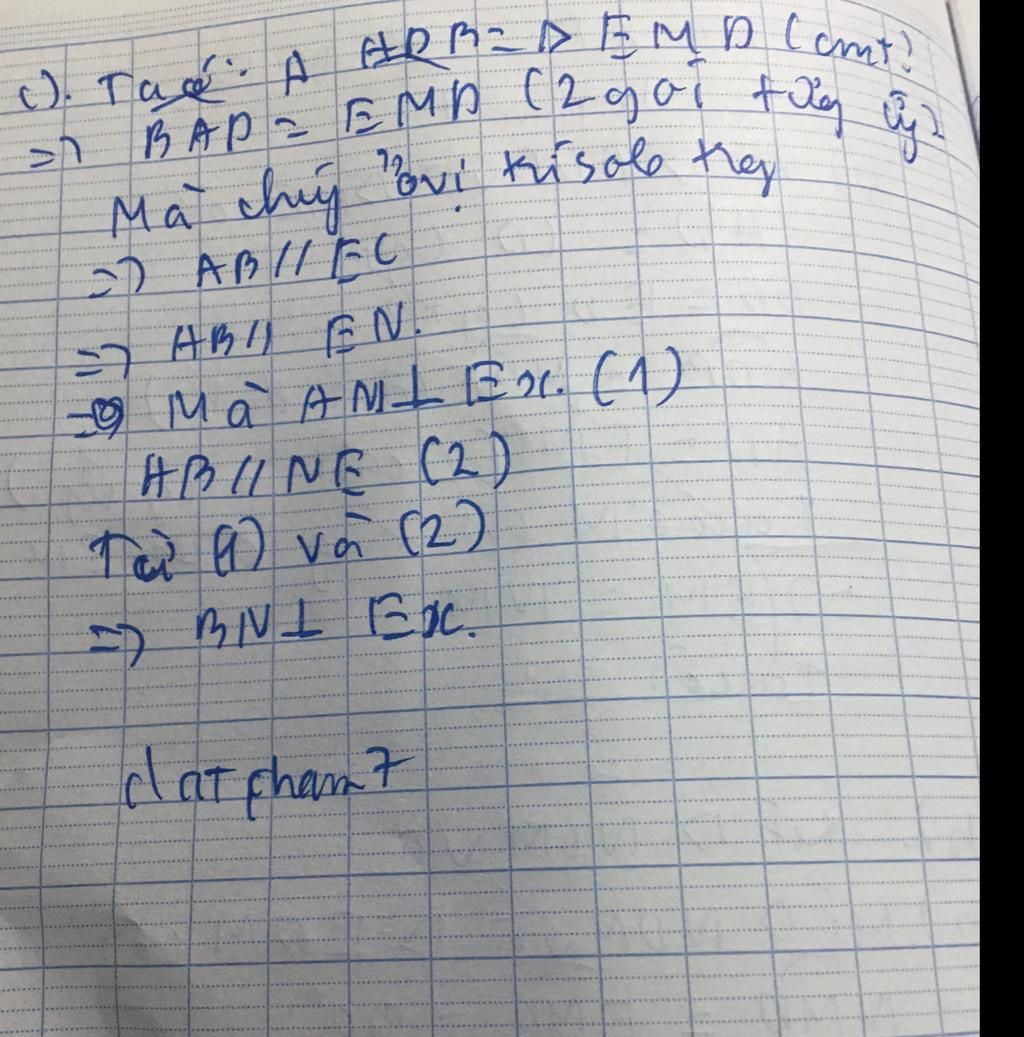 c). Ta có: Δ ADB = Δ EMD (cmt)
=> BAD = EMD (2 góc tg ứg)
Mà chúg ở vị trí sole trg
=> AB // EC
=> AB // EN.
=> Mà AN ⊥ Ex. (1)
AB // NE (2)
Từ (1) và (2)
=> BN ⊥ Ex.
datpham7